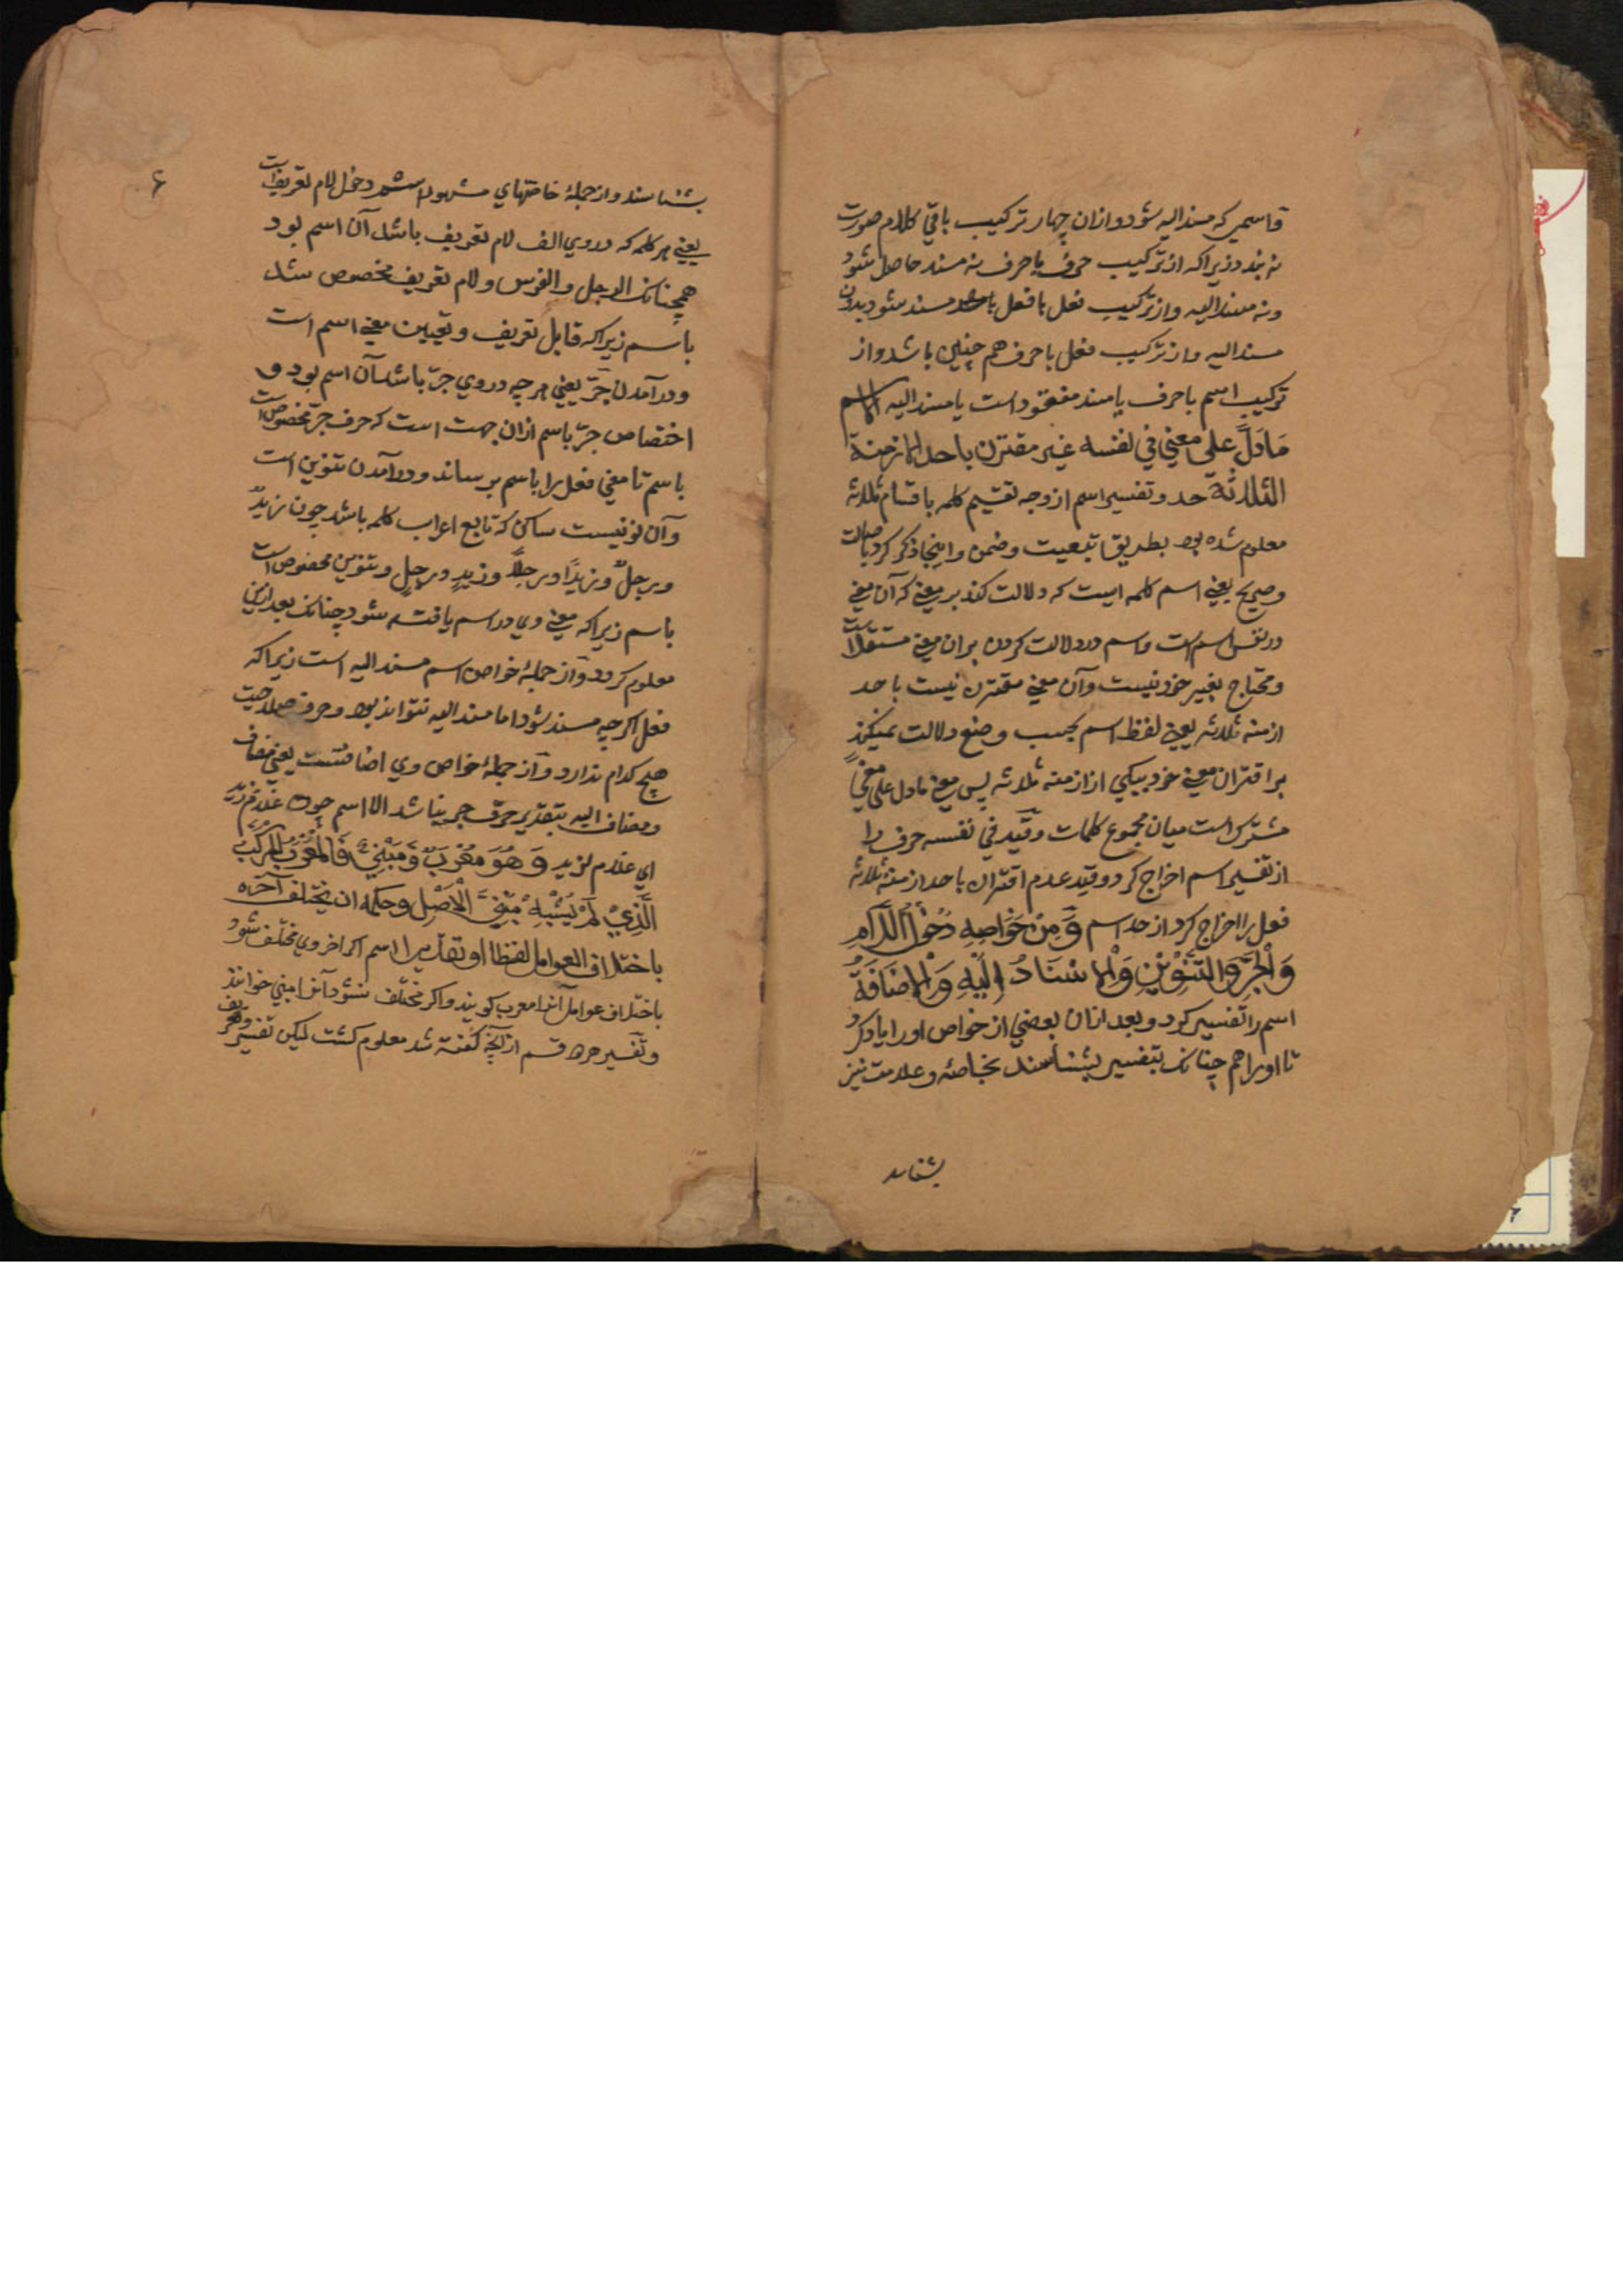 و اسمی که مسند الیه شود و ازان چهار ترکیب باقی کلام صورت
نه بندد زیراکه از ترکیب حرف با حرف نه مسند حاصل شود
ونه مسند الیه و از ترکیب فعل با فعل مسند شود بدون
مسند الیه و از ترکیب فعل با حرف هم چنین باشد و از
ترکیب اسم با حرف یا مسند مفقود است یا مسند الیه الاسم
مَادَلَّ علی معنی فی نفسه غیر مقترن باحد الازمنة
الثلاثة حد و تفسیر اسم از وجه تقسیم کلمه باقسام ثلاثه
معلوم شده بود بطریق تبعیت و ضمن و اینجا ذکر کرد باصالت
و صریح یعنی اسم کلمه ایست که دلالت کند بر معنی که آن معنی
در نفس اسم است و اسم در دلالت کردن بران معنی مستقل است
و محتاج بغیر خود نیست و آن معنی مقترن نیست باحد
ازمنه ثلاثه یعنی لفظ اسم بحسب وضع دلالت نمیکند
بر اقتران معنی خود بیکی از ازمنه ثلاثه پس معنی مادل علی معنیً
مشترک است میان مجموع کلمات و قید فی نفسه حرف را
از تفسیر اسم اخراج کرد و قید عدم اقتران باحد ازمنه ثلاثه
فعل را اخراج کرد از حد اسم وَمِنْ خَوَاصِهِ دُخُوْلُ اللَّامِ
وَالْجَرِّ وَالتَّنْوِيْنِ وَالْاِسْنَادُ اِلَيْهِ وَالْاِضَافَةُ
اسم را تفسیر کرد و بعد ازان بعضی از خواص او را یاد کرد
تا او را هم چنانک بتفسیر بشناسند بخاصه و علامت نیز
بشناسد
۶
بشناسند و از جملهٔ خاصتهای مشهور اسم دخول لام تعریف است
یعنی هر کلمه که در وی الف لام تعریف باشد آن اسم بود
همچنانک الرجل والفرس و لام تعریف مخصوص شد
باسم زیراکه قابل تعریف و تعیین معنی اسم است
و در آمدن جَرّ یعنی هر چه در وی جرّ باشد آن اسم بود و
اختصاص جرّ باسم ازان جهت است که حرف جرّ مخصوص است
باسم تا معنی فعل را باسم برساند و در آمدن تنوین است
و آن نونیست ساکن که تابع اعراب کلمه باشد چون زیدٌ
و رجلٌ و زیدًا و رجلًا و زیدٍ و رجلٍ و تنوین مخصوص است
باسم زیراکه معنی وی در اسم یافته شود چنانک بعد ازین
معلوم گردد و از جملهٔ خواص اسم مسند الیه است زیراکه
فعل اگرچه مسند شود اما مسند الیه نتواند بود و حرف صلاحیت
هیچ کدام ندارد و از جملهٔ خواص وی اضافتست یعنی مضاف
و مضاف الیه بتقدیر حرف جر نباشد الا اسم چون غلام زیدٍ
ای غلام لزید وَهُوَ مُعْرَبٌ وَمَبْنِيٌّ فَالْمُعْرَبُ الْمُرَكَّبُ
الَّذِيْ لَمْ يُشْبِهْ مَبْنِيَّ الْاَصْلِ وحکمه ان یختلف آخره
باختلاف العوامل لفظا او تقدیرا اسم اگر آخر وی مختلف شود
باختلاف عوامل آنرا معرب گویند و اگر مختلف نشود آنرا مبنی خوانند
و تفسیر هر دو قسم از آنچه گفته شد معلوم گشت لیکن تفسیر و تعریف